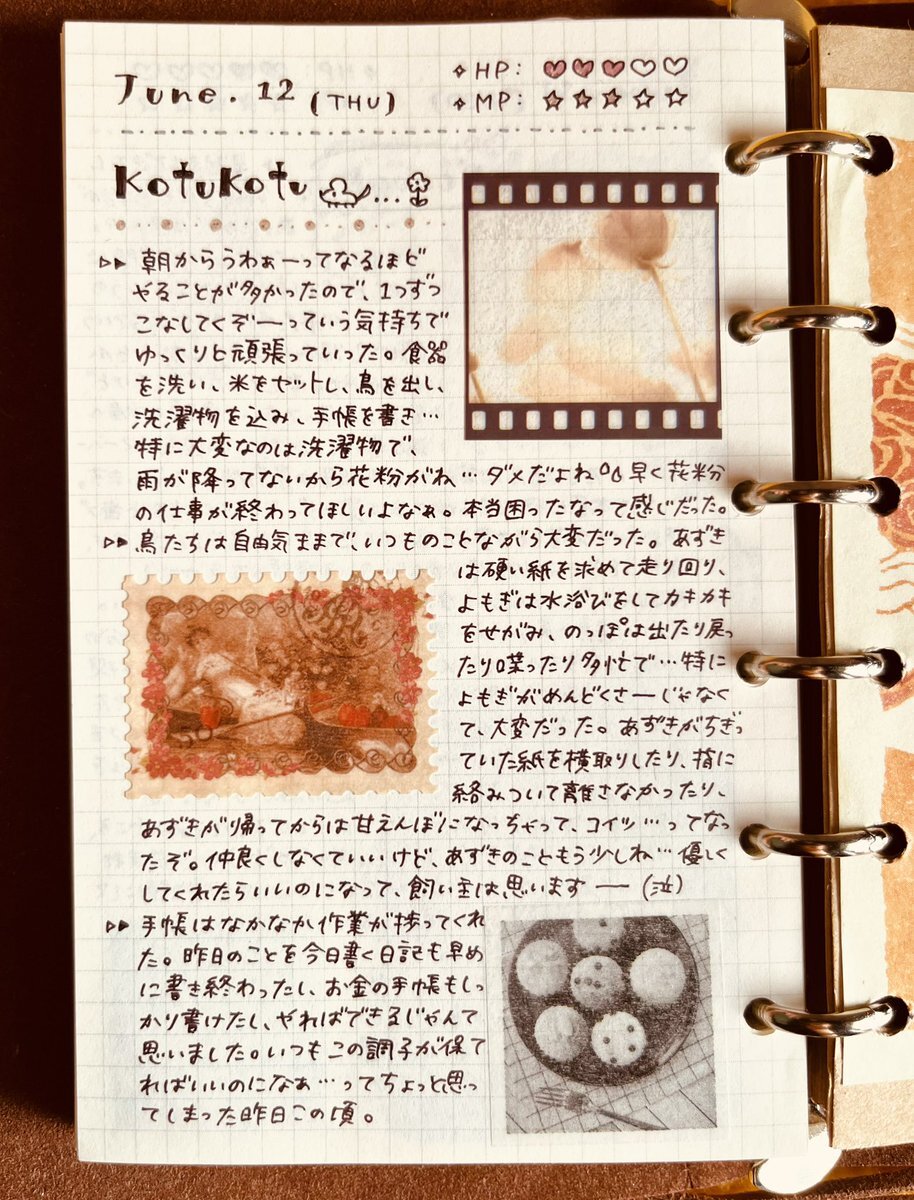 June. 12 (THU)
HP:
MP:
Kotukotu ...
朝からうわぁーってなるほど
やることが多かったので、1つずつ
こなしてくぞーっていう気持ちで
ゆっくりと頑張っていった。食器
を洗い、米をセットし、鳥を出し、
洗濯物を込み、手帳を書き…
特に大変なのは洗濯物で、
雨が降ってないから花粉がね…ダメだよね 早く花粉
の仕事が終わってほしいよなぁ。本当困ったなって感じだった。
鳥たちは自由気ままで、いつものことながら大変だった。あずき
は硬い紙を求めて走り回り、
よもぎは水浴びをしてカキカキ
をせがみ、のっぽは出たり戻っ
たり喋ったり多忙で…特に
よもぎがめんどくさーじゃなく
て、大変だった。あずきがちぎっ
ていた紙を横取りしたり、指に
絡みついて離さなかったり、
あずきが帰ってからは甘えんぼになっちゃって、コイツ…ってなっ
たぞ。仲良くしなくていいけど、あずきのこともう少しね…優しく
してくれたらいいのになって、飼い主は思いますー(泣)
手帳はなかなか作業が捗ってくれ
た。昨日のことを今日書く日記も早め
に書き終わったし、お金の手帳もしっ
かり書けたし、やればできるじゃんて
思いました。いつもこの調子が保て
ればいいのになぁ…ってちょっと思っ
てしまった昨日この頃。